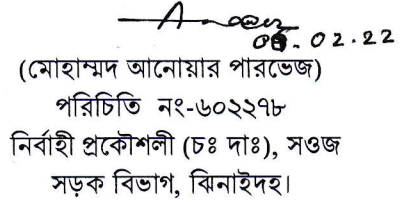 ০৪.০২.২২
(মোহাম্মদ আনোয়ার পারভেজ)
পরিচিতি নং-৬০২২৭৮
নির্বাহী প্রকৌশলী (চঃ দাঃ), সওজ
সড়ক বিভাগ, ঝিনাইদহ।